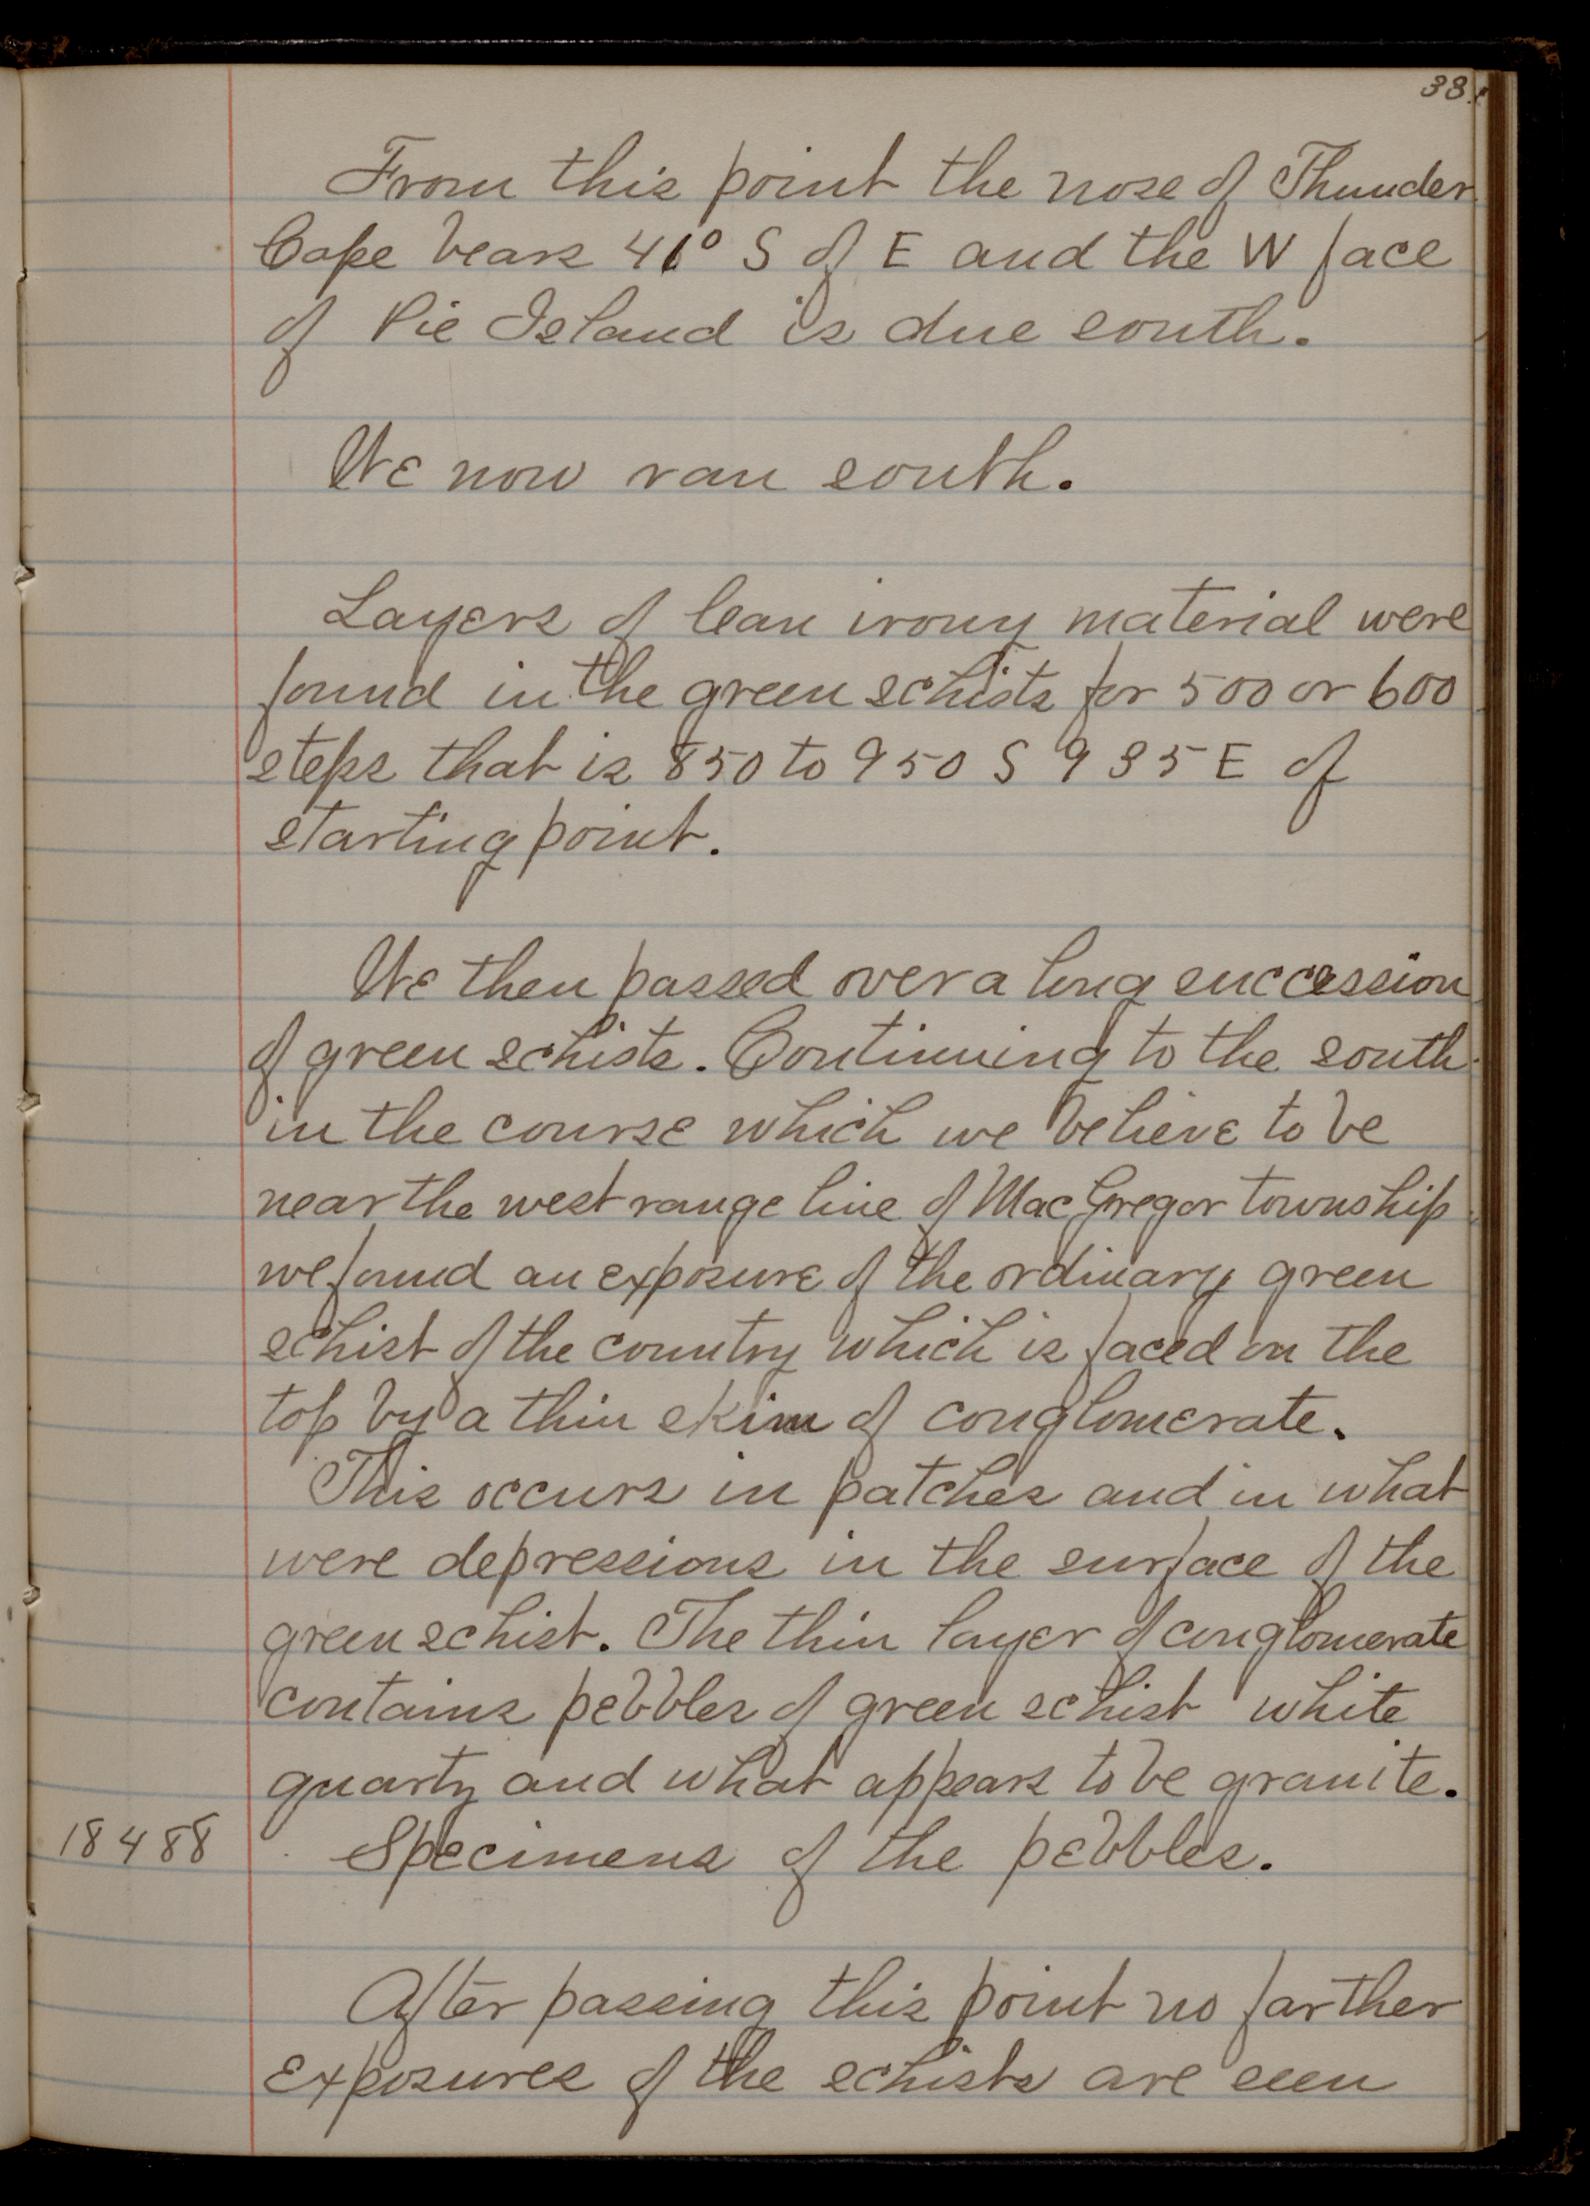 38.
From this point the nose of Thunder
Cape bears 41° S of E and the W face
of Pie Island is due south.
We now ran south.
Layers of lean irony material were
found in the green schists for 500 or 600
steps that is 850 to 950 S 935 E of
starting point.
We then passed over a long succession
of green schists. Continuing to the south
in the course which we believe to be
near the west range line of MacGregor township
we found an exposure of the ordinary green
schist of the country which is faced on the
top by a thin skim of conglomerate.
This occurs in patches and in what
were depressions in the surface of the
green schist. The thin layer of conglomerate
contains pebbles of green schist white
quartz and what appears to be granite.
18488 Specimens of the pebbles.
After passing this point no farther
exposures of the schists are seen